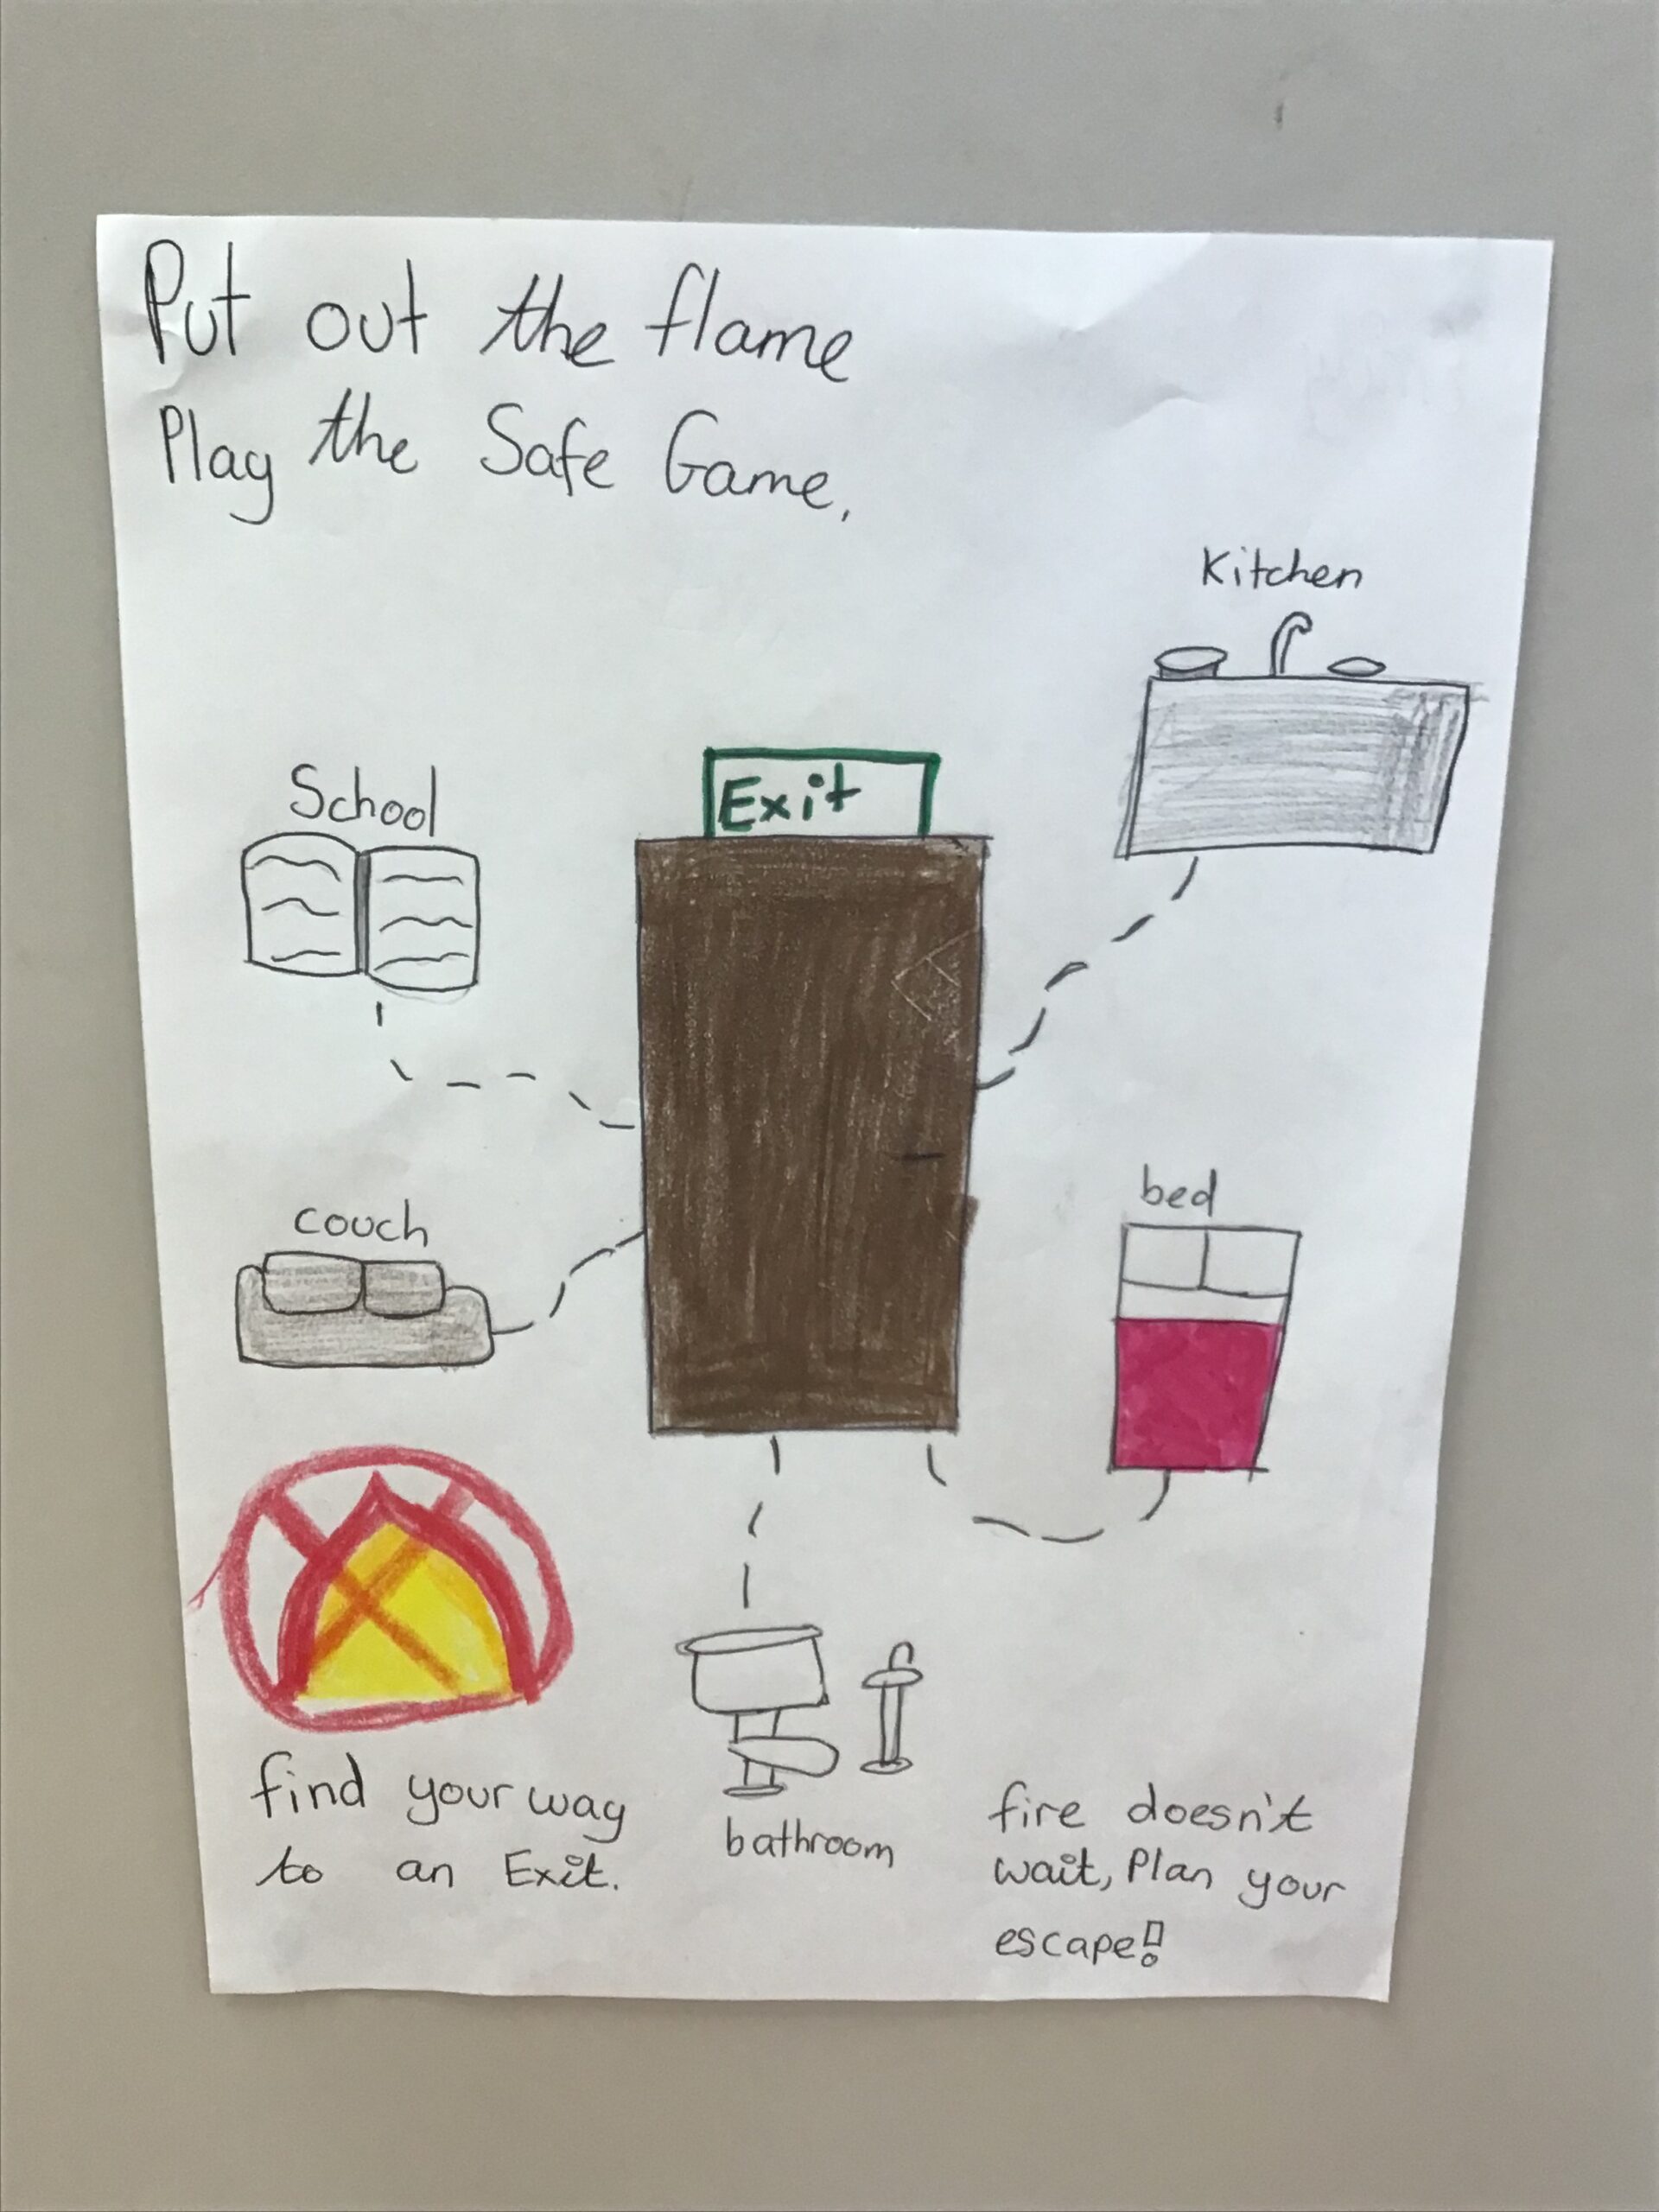 Put out the flame
Play the Safe Game.
Kitchen
School
Exit
bed
couch
find your way
to an Exit.
bathroom
fire doesn't
wait, Plan your
escape!